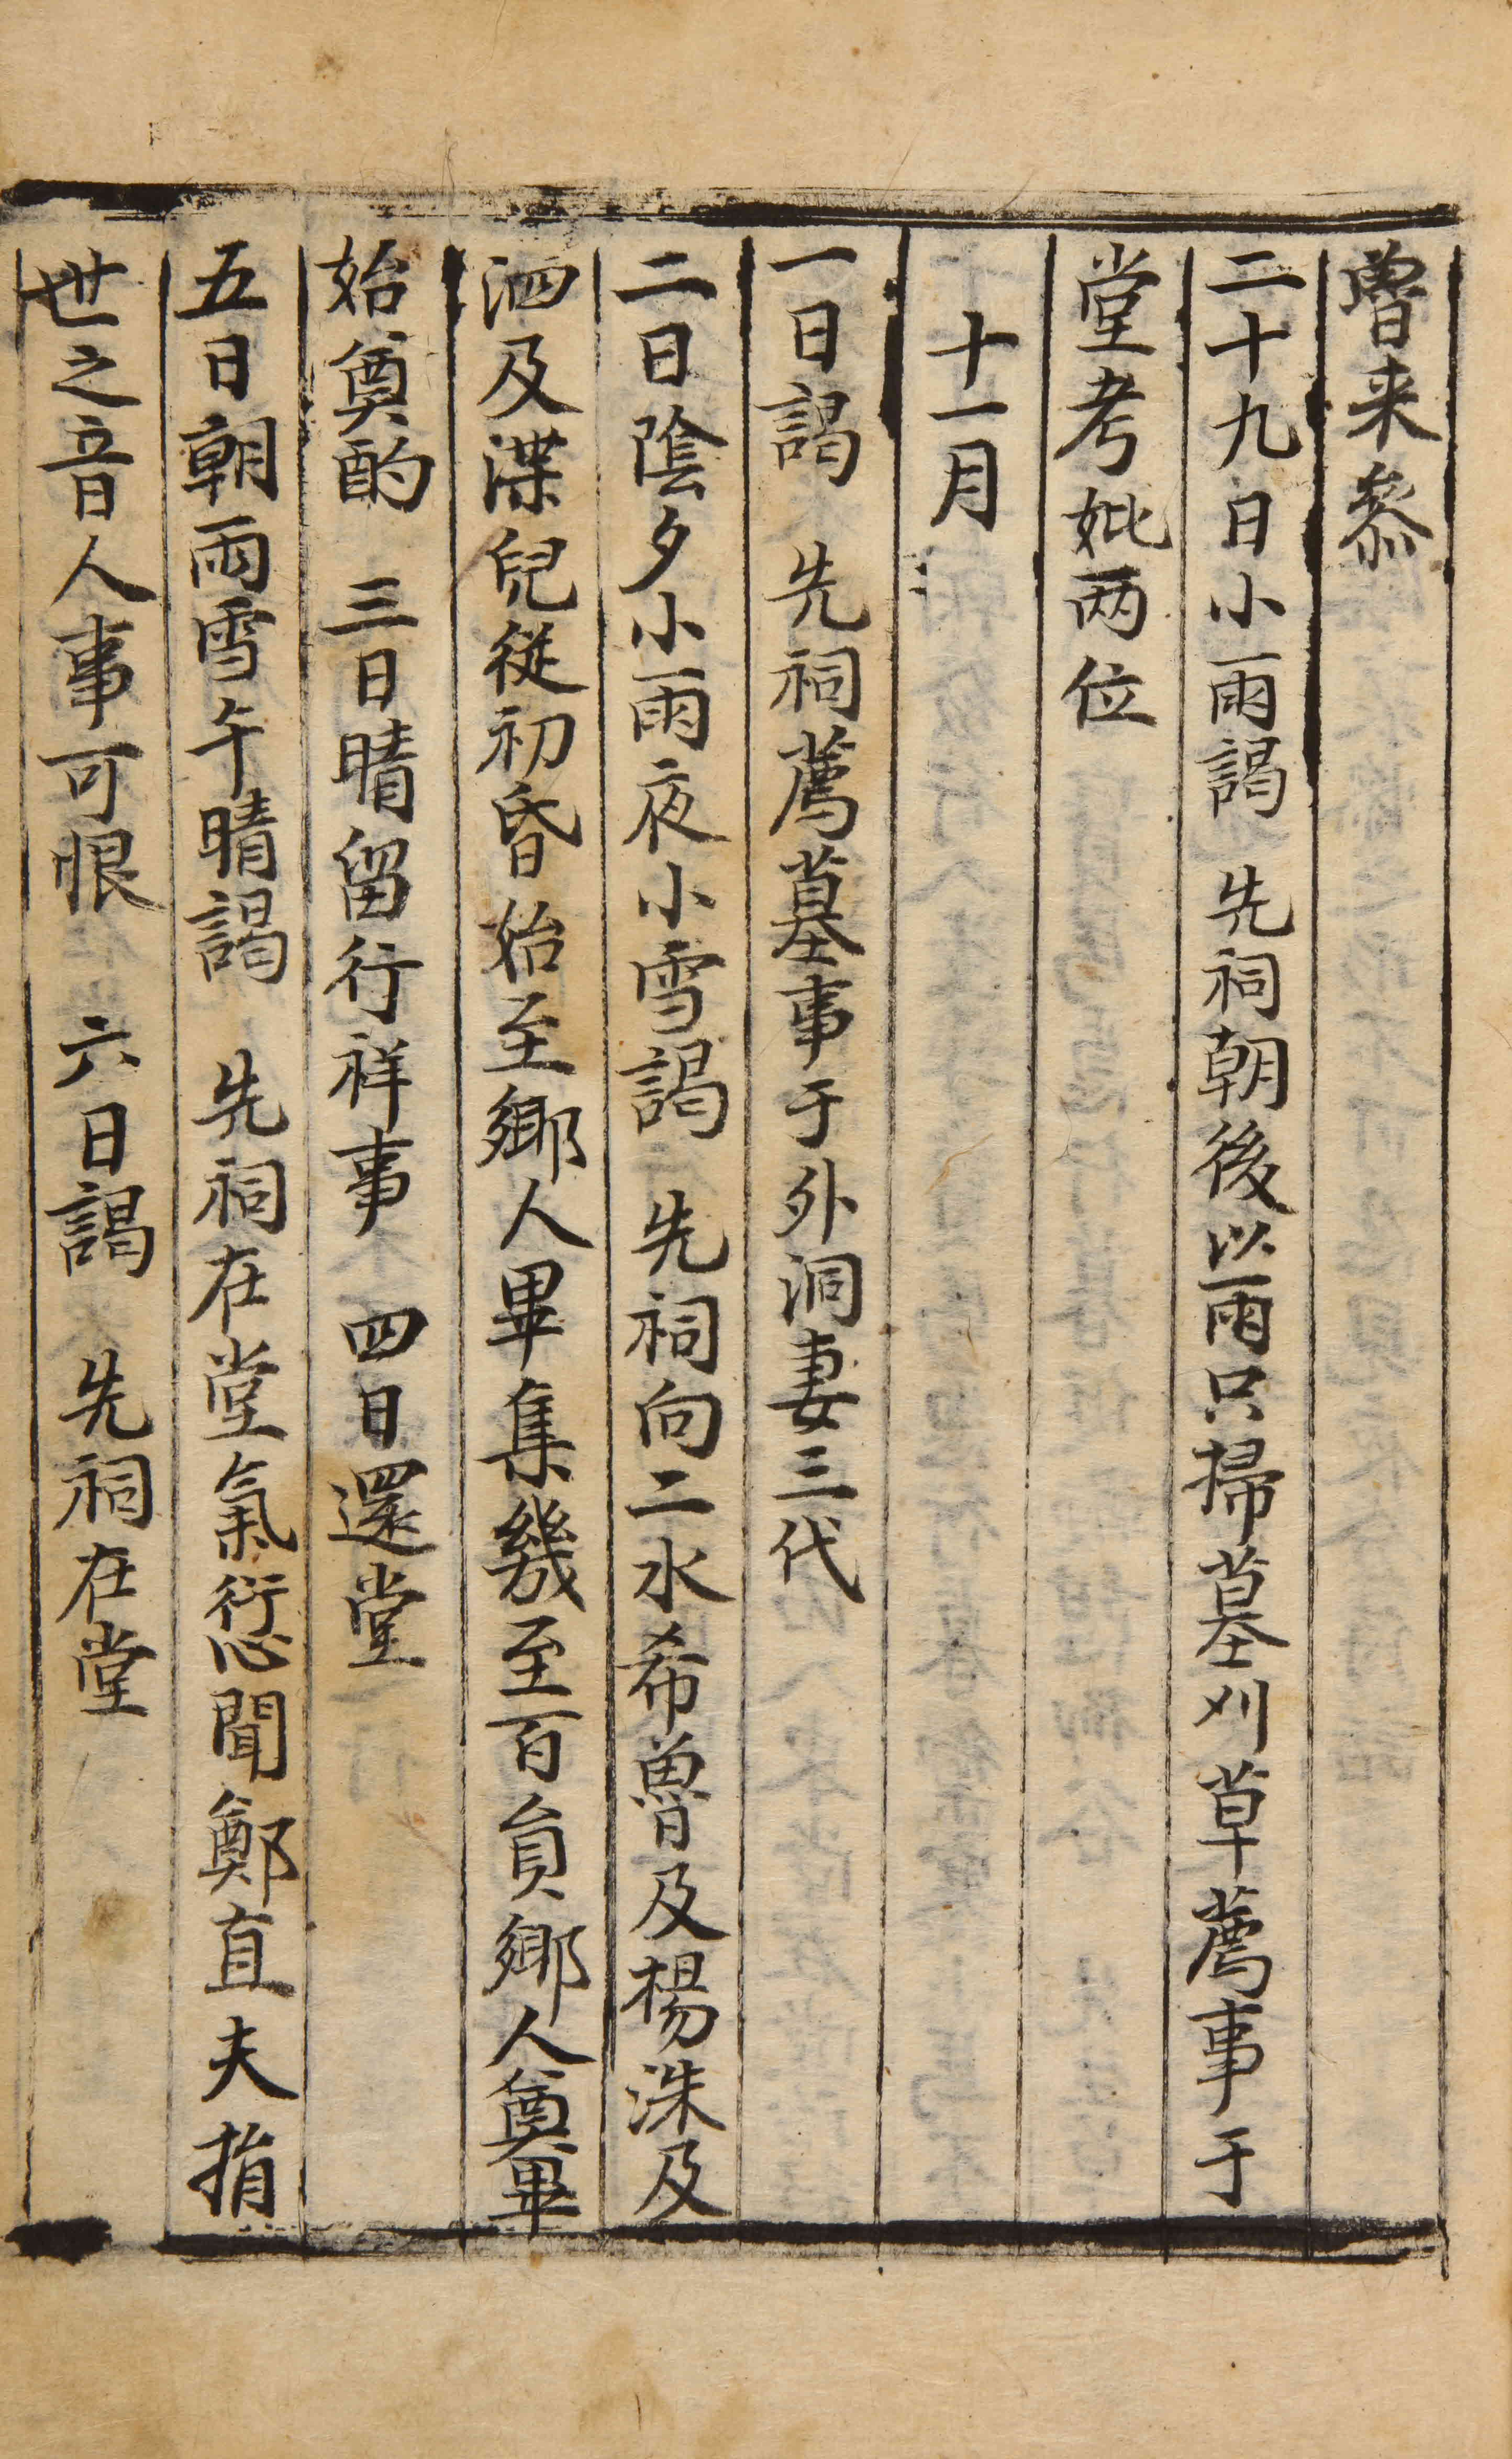 魯来叅
二十九日小雨謁　先祠朝後以雨只掃墓刈草薦事于
堂考妣两位
十一月
一日謁　先祠薦墓事于外洞妻三代
二日陰夕小雨夜小雪謁　先祠向二水希魯及楊洙及
泗及渫兒從初昏始至鄉人畢集幾至百員鄉人奠畢
始奠酌　三日晴留行祥事　四日還堂
五日朝雨雪午晴謁　先祠在堂氣愆聞鄭直夫捐
世之音人事可恨　六日謁　先祠在堂